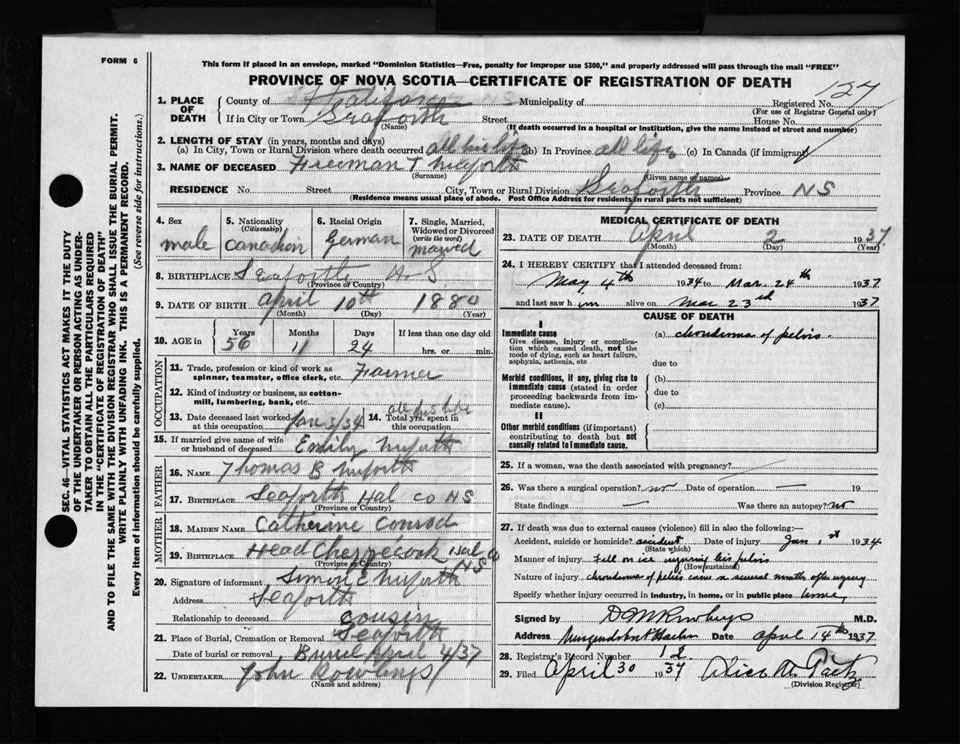 FORM 6
This form if placed in an envelope, marked "Dominion Statistics—Free, penalty for improper use $300," and properly addressed will pass through the mail "FREE"
PROVINCE OF NOVA SCOTIA—CERTIFICATE OF REGISTRATION OF DEATH
SEC. 46—VITAL STATISTICS ACT MAKES IT THE DUTY
OF THE UNDERTAKER OR PERSON ACTING AS UNDER-
TAKER TO OBTAIN ALL THE PARTICULARS REQUIRED
IN THE "CERTIFICATE OF REGISTRATION OF DEATH"
AND TO FILE THE SAME WITH THE DIVISION REGISTRAR WHO SHALL ISSUE THE BURIAL PERMIT.
WRITE PLAINLY WITH UNFADING INK. THIS IS A PERMANENT RECORD.
Every item of information should be carefully supplied. (See reverse side for instructions.)
1. PLACE OF DEATH
County of Halifax NS Municipality of Registered No. 127
(For use of Registrar General only)
If in City or Town Seaforth Street House No.
(Name) (If death occurred in a hospital or institution, give the name instead of street and number)
2. LENGTH OF STAY (in years, months and days)
(a) In City, Town or Rural Division where death occurred all his life (b) In Province all life (c) In Canada (if immigrant)
3. NAME OF DECEASED Freeman T Nieforth
(Surname) (Given name or names)
RESIDENCE No. Street City, Town or Rural Division Seaforth Province NS
(Residence means usual place of abode. Post Office Address for residents in rural parts not sufficient)
4. Sex male
5. Nationality (Citizenship) Canadian
6. Racial Origin German
7. Single, Married, Widowed or Divorced (write the word) married
8. BIRTHPLACE Seaforth N S
(Province or Country)
9. DATE OF BIRTH April 10th 1880
(Month) (Day) (Year)
10. AGE in Years 56 Months 11 Days 24 If less than one day old
hrs. or min.
OCCUPATION
11. Trade, profession or kind of work as spinner, teamster, office clerk, etc. Farmer
12. Kind of industry or business, as cotton-mill, lumbering, bank, etc.
13. Date deceased last worked at this occupation Jan 3/34
14. Total yrs. spent in this occupation all his life
15. If married give name of wife or husband of deceased Emily Nieforth
FATHER
16. NAME Thomas B Nieforth
17. BIRTHPLACE Seaforth Hal co NS
(Province or Country)
MOTHER
18. MAIDEN NAME Catherine Conrod
19. BIRTHPLACE Head Chezzecook Hal Co NS
(Province or Country)
20. Signature of informant Simon E Nieforth
Address Seaforth
Relationship to deceased cousin
21. Place of Burial, Cremation or Removal Seaforth
Date of burial or removal Buriel April 4/37
22. UNDERTAKER John Rowlings
(Name and address)
MEDICAL CERTIFICATE OF DEATH
23. DATE OF DEATH April 2 1937
(Month) (Day) (Year)
24. I HEREBY CERTIFY that I attended deceased from:
May 4th 1934 to Mar. 24th 1937
and last saw him alive on Mar 23rd 1937
CAUSE OF DEATH
I
Immediate cause
Give disease, injury or complication which caused death, not the mode of dying, such as heart failure, asphyxia, asthenia, etc
(a) chondroma of pelvis
due to
Morbid conditions, if any, giving rise to immediate cause (stated in order proceeding backwards from immediate cause).
(b)
due to
(c)
II
Other morbid conditions (if important) contributing to death but not causally related to immediate cause.
25. If a woman, was the death associated with pregnancy?
26. Was there a surgical operation? no Date of operation — 19
State findings Was there an autopsy? no
27. If death was due to external causes (violence) fill in also the following:—
Accident, suicide or homicide? accident Date of injury Jan. 1st 1934
(State which)
Manner of injury Fell on ice injuring his pelvis
(How sustained)
Nature of injury chondroma of pelvis came on several months after injury
Specify whether injury occurred in industry, in home, or in public place home
Signed by M.D.
Address Musquodoboit Harbor Date April 14th 1937
28. Registrar's Record Number 12
29. Filed April 30 1937
(Division Registrar)